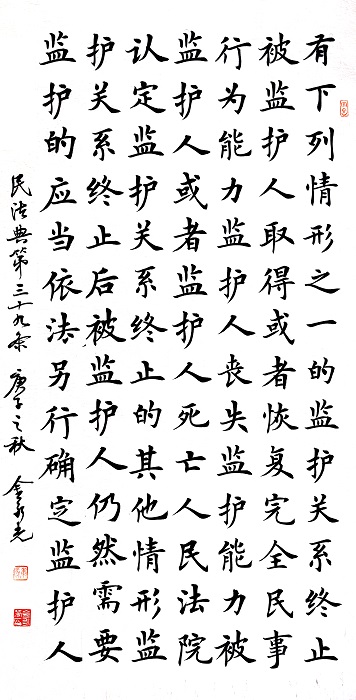 有下列情形之一的监护关系终止
被监护人取得或者恢复完全民事
行为能力监护人丧失监护能力被
监护人或者监护人死亡人民法院
认定监护关系终止的其他情形监
护关系终止后被监护人仍然需要
监护的应当依法另行确定监护人
民法典第三十九条 庚子之秋